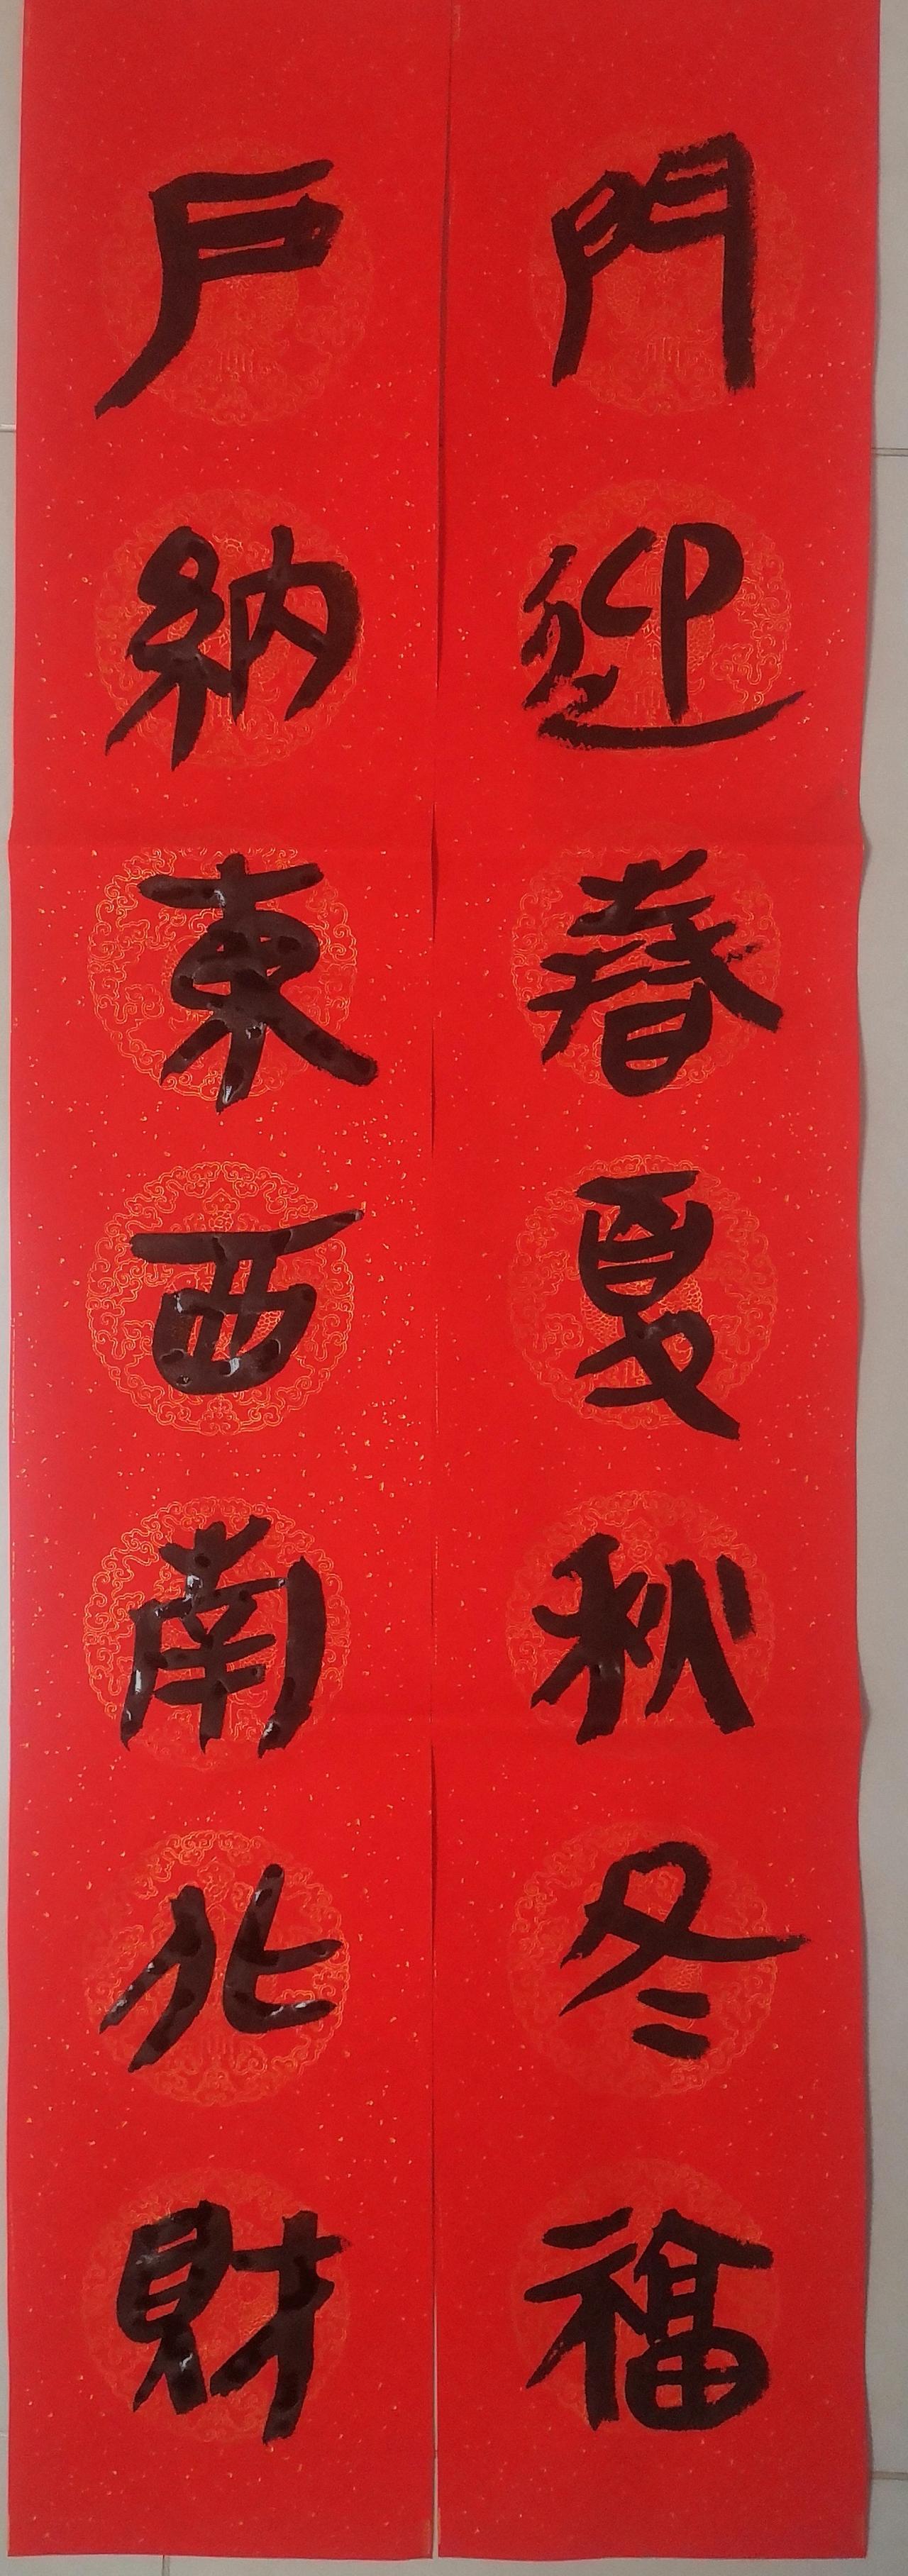 門迎春夏秋冬福
戶納東西南北財